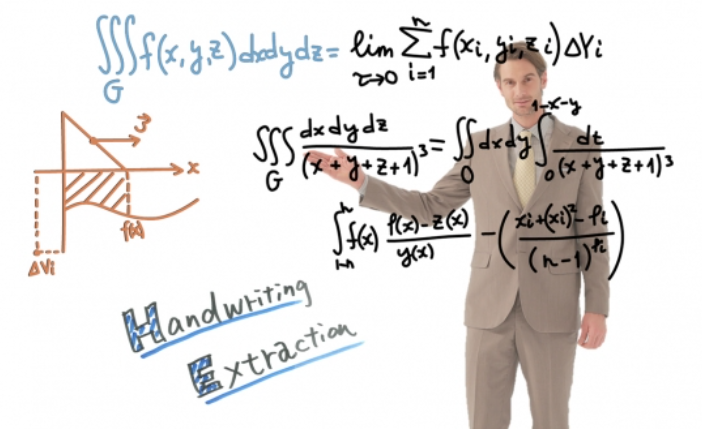 ∭_G f(x,y,z)dxdydz = lim_{τ→0} Σ_{i=1}^{n} f(xi,yi,zi)ΔVi
∭_G dxdydz/(x+y+z+1)³ = ∬_0 dxdy ∫_0^{1-x-y} dt/(x+y+z+1)³
f(x) (f(x)-z(x))/y(x) - (
x
f(x)
ΔVi
Handwriting
Extraction